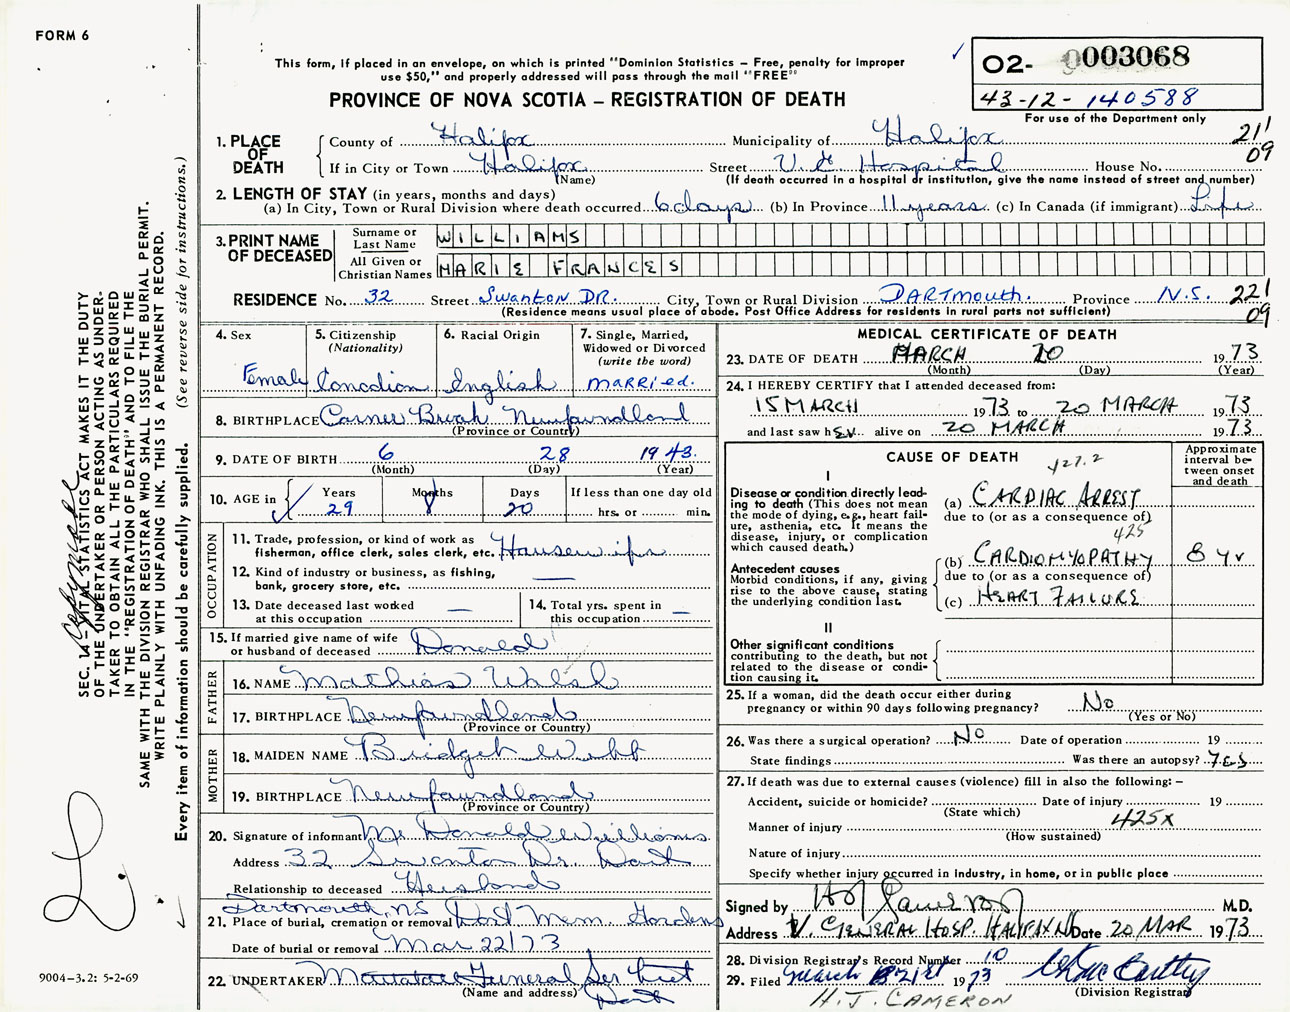 FORM 6
This form, if placed in an envelope, on which is printed "Dominion Statistics – Free, penalty for improper
use $50," and properly addressed will pass through the mail "FREE"
PROVINCE OF NOVA SCOTIA – REGISTRATION OF DEATH
02- 0003068
43-12- 140588
For use of the Department only
1. PLACE OF DEATH
County of Halifax Municipality of Halifax 211
If in City or Town Halifax Street V.G. Hospital House No. 09
(Name) (If death occurred in a hospital or institution, give the name instead of street and number)
2. LENGTH OF STAY (in years, months and days)
(a) In City, Town or Rural Division where death occurred 6 days (b) In Province 11 years (c) In Canada (if immigrant) Life
3. PRINT NAME OF DECEASED
Surname or Last Name WILLIAMS
All Given or Christian Names MARIE FRANCES
RESIDENCE No. 32 Street Swanton DR. City, Town or Rural Division DARTmouth. Province N.S. 221
(Residence means usual place of abode. Post Office Address for residents in rural parts not sufficient) 09
4. Sex Female
5. Citizenship (Nationality) Canadian
6. Racial Origin English
7. Single, Married, Widowed or Divorced (write the word) married.
8. BIRTHPLACE Corner Brook Newfoundland
(Province or Country)
9. DATE OF BIRTH 6 28 1943
(Month) (Day) (Year)
10. AGE in Years 29 Months 8 Days 20 If less than one day old hrs. or min.
OCCUPATION
11. Trade, profession, or kind of work as fisherman, office clerk, sales clerk, etc. Housewife
12. Kind of industry or business, as fishing, bank, grocery store, etc. —
13. Date deceased last worked at this occupation —
14. Total yrs. spent in this occupation —
15. If married give name of wife or husband of deceased Donald
FATHER
16. NAME Mathias Walsh
17. BIRTHPLACE Newfoundland
(Province or Country)
MOTHER
18. MAIDEN NAME Bridget Webb
19. BIRTHPLACE Newfoundland
(Province or Country)
20. Signature of informant Mr Donald Williams
Address 32 Swanton Dr. Dart
Relationship to deceased Husband
Dartmouth, NS
21. Place of burial, cremation or removal Dart Mem. Gardens
Date of burial or removal Mar 22/73
22. UNDERTAKER Funeral Ser
(Name and address) Dart
MEDICAL CERTIFICATE OF DEATH
23. DATE OF DEATH MARCH 20 1973
(Month) (Day) (Year)
24. I HEREBY CERTIFY that I attended deceased from:
15 MARCH 1973 to 20 MARCH 1973
and last saw her alive on 20 MARCH 1973
CAUSE OF DEATH 427.2
Approximate interval between onset and death
I
Disease or condition directly leading to death (This does not mean the mode of dying, e.g., heart failure, asthenia, etc. It means the disease, injury, or complication which caused death.)
(a) CARDIAC ARREST
due to (or as a consequence of)
425
Antecedent causes
Morbid conditions, if any, giving rise to the above cause, stating the underlying condition last.
(b) CARDIOMYOPATHY 8 yr
due to (or as a consequence of)
(c) HEART FAILURE
II
Other significant conditions
contributing to the death, but not related to the disease or condition causing it.
25. If a woman, did the death occur either during pregnancy or within 90 days following pregnancy? No
(Yes or No)
26. Was there a surgical operation? No Date of operation 19
State findings Was there an autopsy? YES
27. If death was due to external causes (violence) fill in also the following: –
Accident, suicide or homicide? Date of injury 19
(State which) 425X
Manner of injury
(How sustained)
Nature of injury
Specify whether injury occurred in industry, in home, or in public place
Signed by M.D.
Address V GENERAL HOSP HALIFAX NS Date 20 MAR 1973
28. Division Registrar's Record Number 10
29. Filed March 21st 1973
(Division Registrar)
H. J. CAMERON
SEC. 14–VITAL STATISTICS ACT MAKES IT THE DUTY
OF THE UNDERTAKER OR PERSON ACTING AS UNDER-
TAKER TO OBTAIN ALL THE PARTICULARS REQUIRED
IN THE "REGISTRATION OF DEATH" AND TO FILE THE
SAME WITH THE DIVISION REGISTRAR WHO SHALL ISSUE THE BURIAL PERMIT.
WRITE PLAINLY WITH UNFADING INK. THIS IS A PERMANENT RECORD.
Every item of information should be carefully supplied. (See reverse side for instructions.)
9004–3.2: 5-2-69